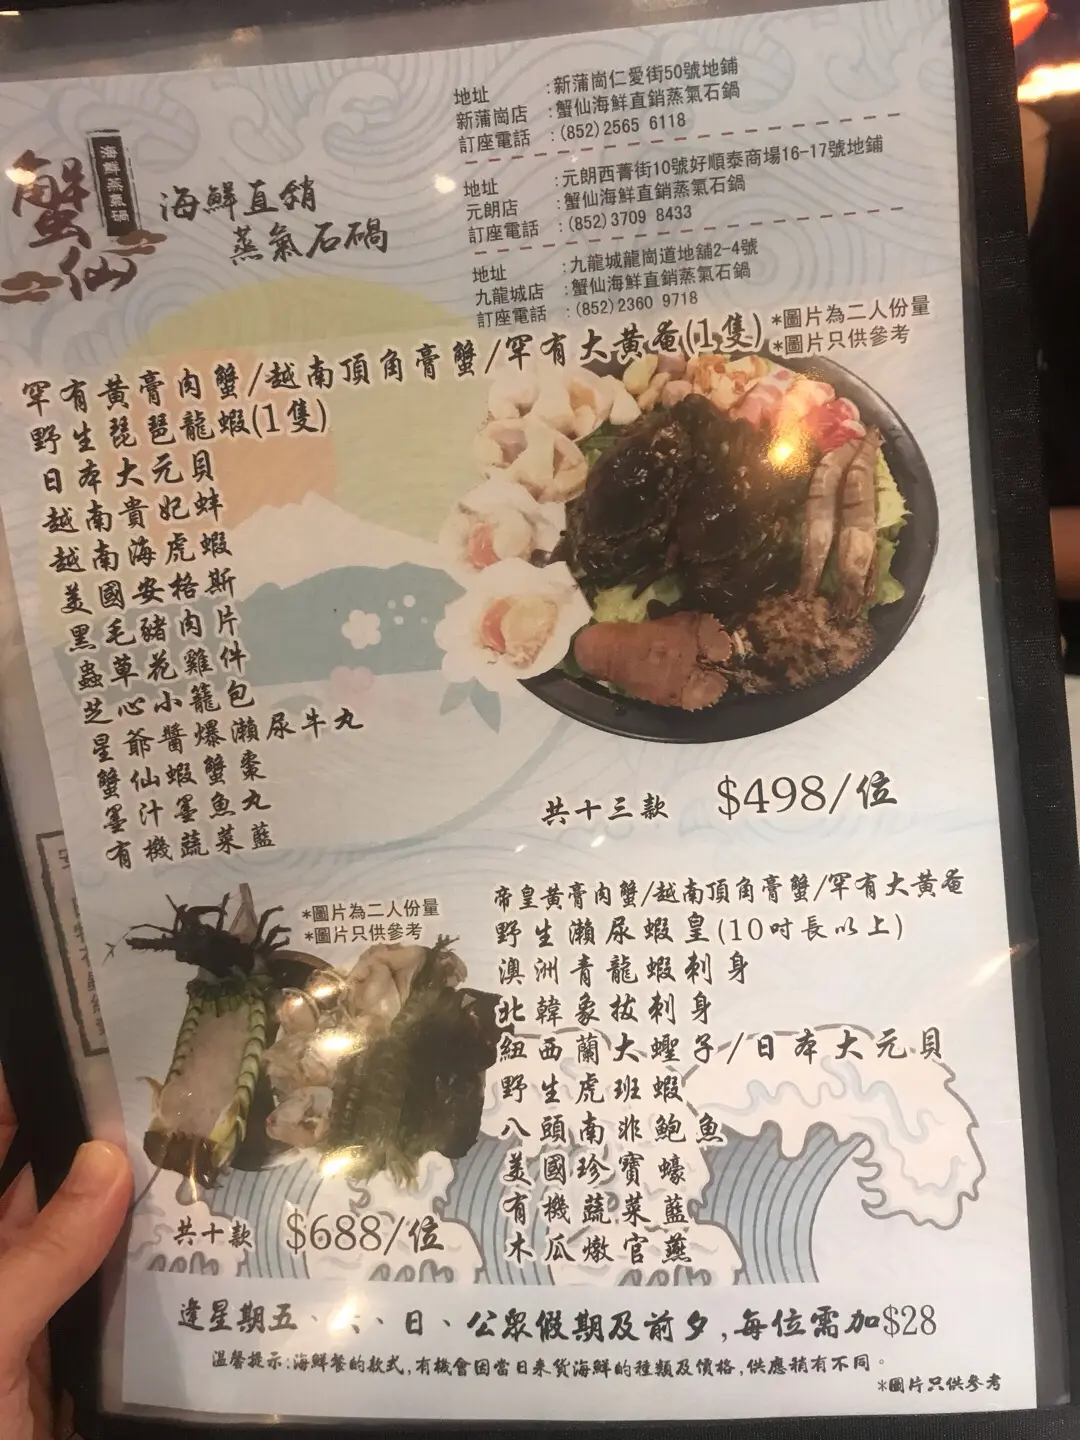 地址 :新蒲崗仁愛街50號地鋪
新蒲崗店 :蟹仙海鮮直銷蒸氣石鍋
訂座電話 :(852)2565 6118
地址 :元朗西菁街10號好順泰商場16-17號地鋪
元朗店 :蟹仙海鮮直銷蒸氣石鍋
訂座電話 :(852)3709 8433
地址 :九龍城龍崗道地舖2-4號
九龍城店 :蟹仙海鮮直銷蒸氣石鍋
訂座電話 :(852)2360 9718
蟹仙
海鮮蒸氣鍋
海鮮直銷
蒸氣石鍋
*圖片為二人份量
*圖片只供參考
罕有黃膏肉蟹/越南頂角膏蟹/罕有大黃奄(1隻)
野生琵琶龍蝦(1隻)
日本大元貝
越南貴妃蚌
越南海虎蝦
美國安格斯
黑毛豬肉片
蟲草花雞件
芝心小籠包
星爺醬爆瀨尿牛丸
蟹仙蝦蟹棗
墨汁墨魚丸
有機蔬菜藍
共十三款 $498/位
*圖片為二人份量
*圖片只供參考
帝皇黃膏肉蟹/越南頂角膏蟹/罕有大黃奄
野生瀨尿蝦皇(10吋長以上)
澳洲青龍蝦刺身
北韓象拔刺身
紐西蘭大蟶子/日本大元貝
野生虎班蝦
八頭南非鮑魚
美國珍寶蠔
有機蔬菜藍
木瓜燉官燕
共十款 $688/位
逢星期五、六、日、公眾假期及前夕,每位需加$28
溫馨提示:海鮮餐的款式,有機會因當日來貨海鮮的種類及價格,供應稍有不同。
*圖片只供參考